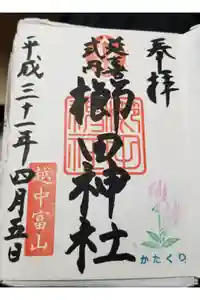 奉拝
延喜
式内
櫛田神社
平成三十一年四月五日
越中富山
かたくり